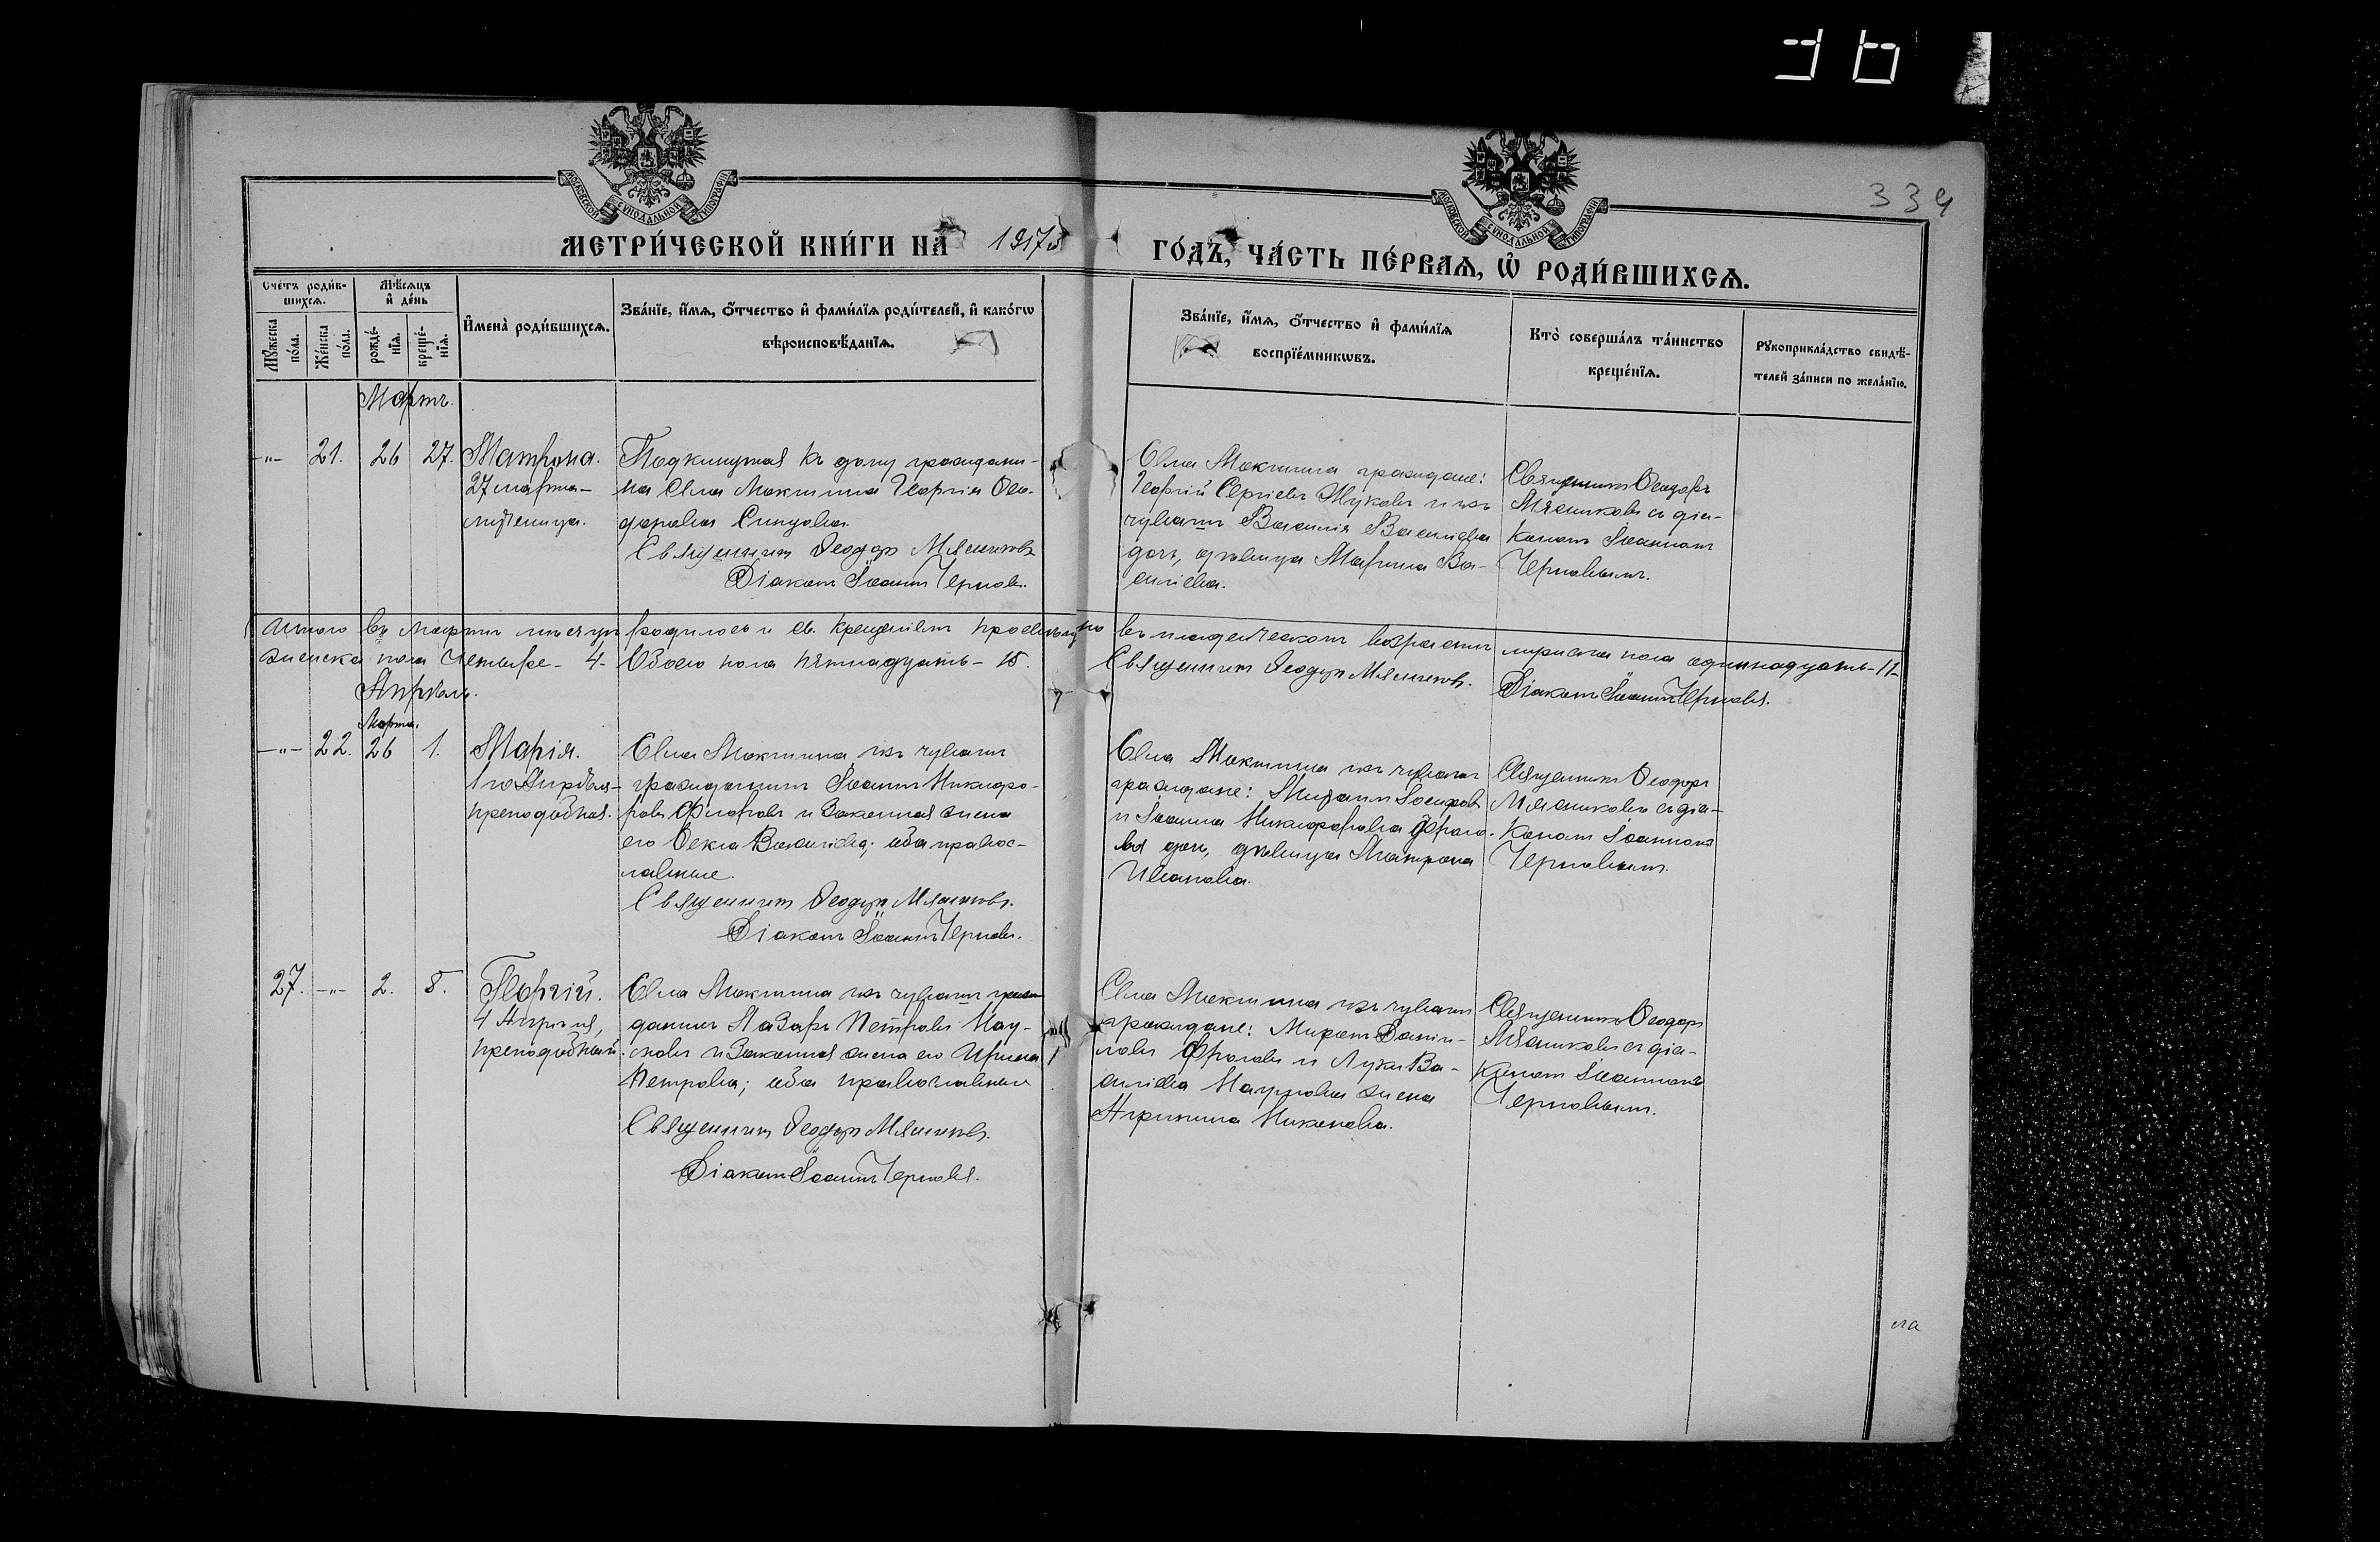 36
334
МОСКОВСКОЙ СУНОДАЛЬНОЙ ТИПОГРАФІИ
МОСКОВСКОЙ СУНОДАЛЬНОЙ ТИПОГРАФІИ
МЕТРИ́ЧЕСКОЙ КНИ́ГИ НА 1917й ГО́ДЪ, ЧА́СТЬ ПЕ́РВАѦ, Ѽ РОДИ́ВШИХСѦ.
Сче́тъ роди́в-
шихсѧ.
Мꙋ́жеска
по́ла.
Же́нска
по́ла.
Мѣ́сѧцъ
и҆ де́нь
рожде́-
нїѧ.
креще́-
нїѧ.
И҆мена̀ роди́вшихсѧ.
Зва́нїе, и҆́мѧ, ѻ҆́тчество и҆ фами́лїѧ роди́телей, и҆ како́гѡ
вѣроисповѣ́данїѧ.
Зва́нїе, и҆́мѧ, ѻ҆́тчество и҆ фами́лїѧ
воспрїе́мникѡвъ.
Кто̀ соверша́лъ та́инство
креще́нїѧ.
Рꙋкоприкла́дство свидѣ́-
телей за́писи по жела́нїю.
Мартъ.
-"- 21. 26 27. Матрона.
27 марта-
мученица.
Подкинутая къ дому граждани-
на села Мокшина Георгія Ѳео-
дорова
Священникъ Ѳеодоръ Мясниковъ
Діаконъ Іоаннъ Черновъ.
Села Мокшина граждане:
Георгій Сергіевъ Жуковъ и изъ
чувашъ Василія Васильева
дочь, дѣвица Марина Ва-
сильева.
Священникъ Ѳеодоръ
Мясниковъ съ діа-
кономъ Іоанномъ
Черновымъ.
Итого въ Мартѣ мѣсяцѣ родилось и св. крещеніемъ просвѣщено въ младенческомъ возрастѣ мужска пола одиннадцать-11-
женска пола четыре- 4- Обоего пола пятнадцать- 15.
Священникъ Ѳеодоръ Мясниковъ. Діаконъ Іоаннъ Черновъ.
Апрѣль.
Марта.
-"- 22. 26 1. Марія.
1го Апрѣля-
преподобная.
Села Мокшина изъ чувашъ
гражданинъ Іоаннъ Никифо-
ровъ Фроловъ и законная жена
его Ѳекла Васильева; оба правос-
лавные.
Священникъ Ѳеодоръ Мясниковъ.
Діаконъ Іоаннъ Черновъ.
Села Мокшина изъ чувашъ
граждане: Михаилъ Іосифовъ
и Іоанна Никифорова Фроло-
ва дочь, дѣвица Матрона
Иванова.
Священникъ Ѳеодоръ
Мясниковъ съ діа-
кономъ Іоанномъ
Черновымъ.
27. -"- 2. 8. Георгій.
4 Апрѣля,
преподобный.
Села Мокшина изъ чувашъ граж-
данинъ Лазарь Петровъ Нау-
мовъ и законная жена его Ирина
Петрова; оба православные
Священникъ Ѳеодоръ Мясниковъ.
Діаконъ Іоаннъ Черновъ.
Села Мокшина изъ чувашъ
граждане: Миронъ Даніи-
ловъ Фроловъ и Луки Ва-
сильева Наумова жена
Агрипина
Священникъ Ѳеодоръ
Мясниковъ съ діа-
кономъ Іоанномъ
Черновымъ.
ла